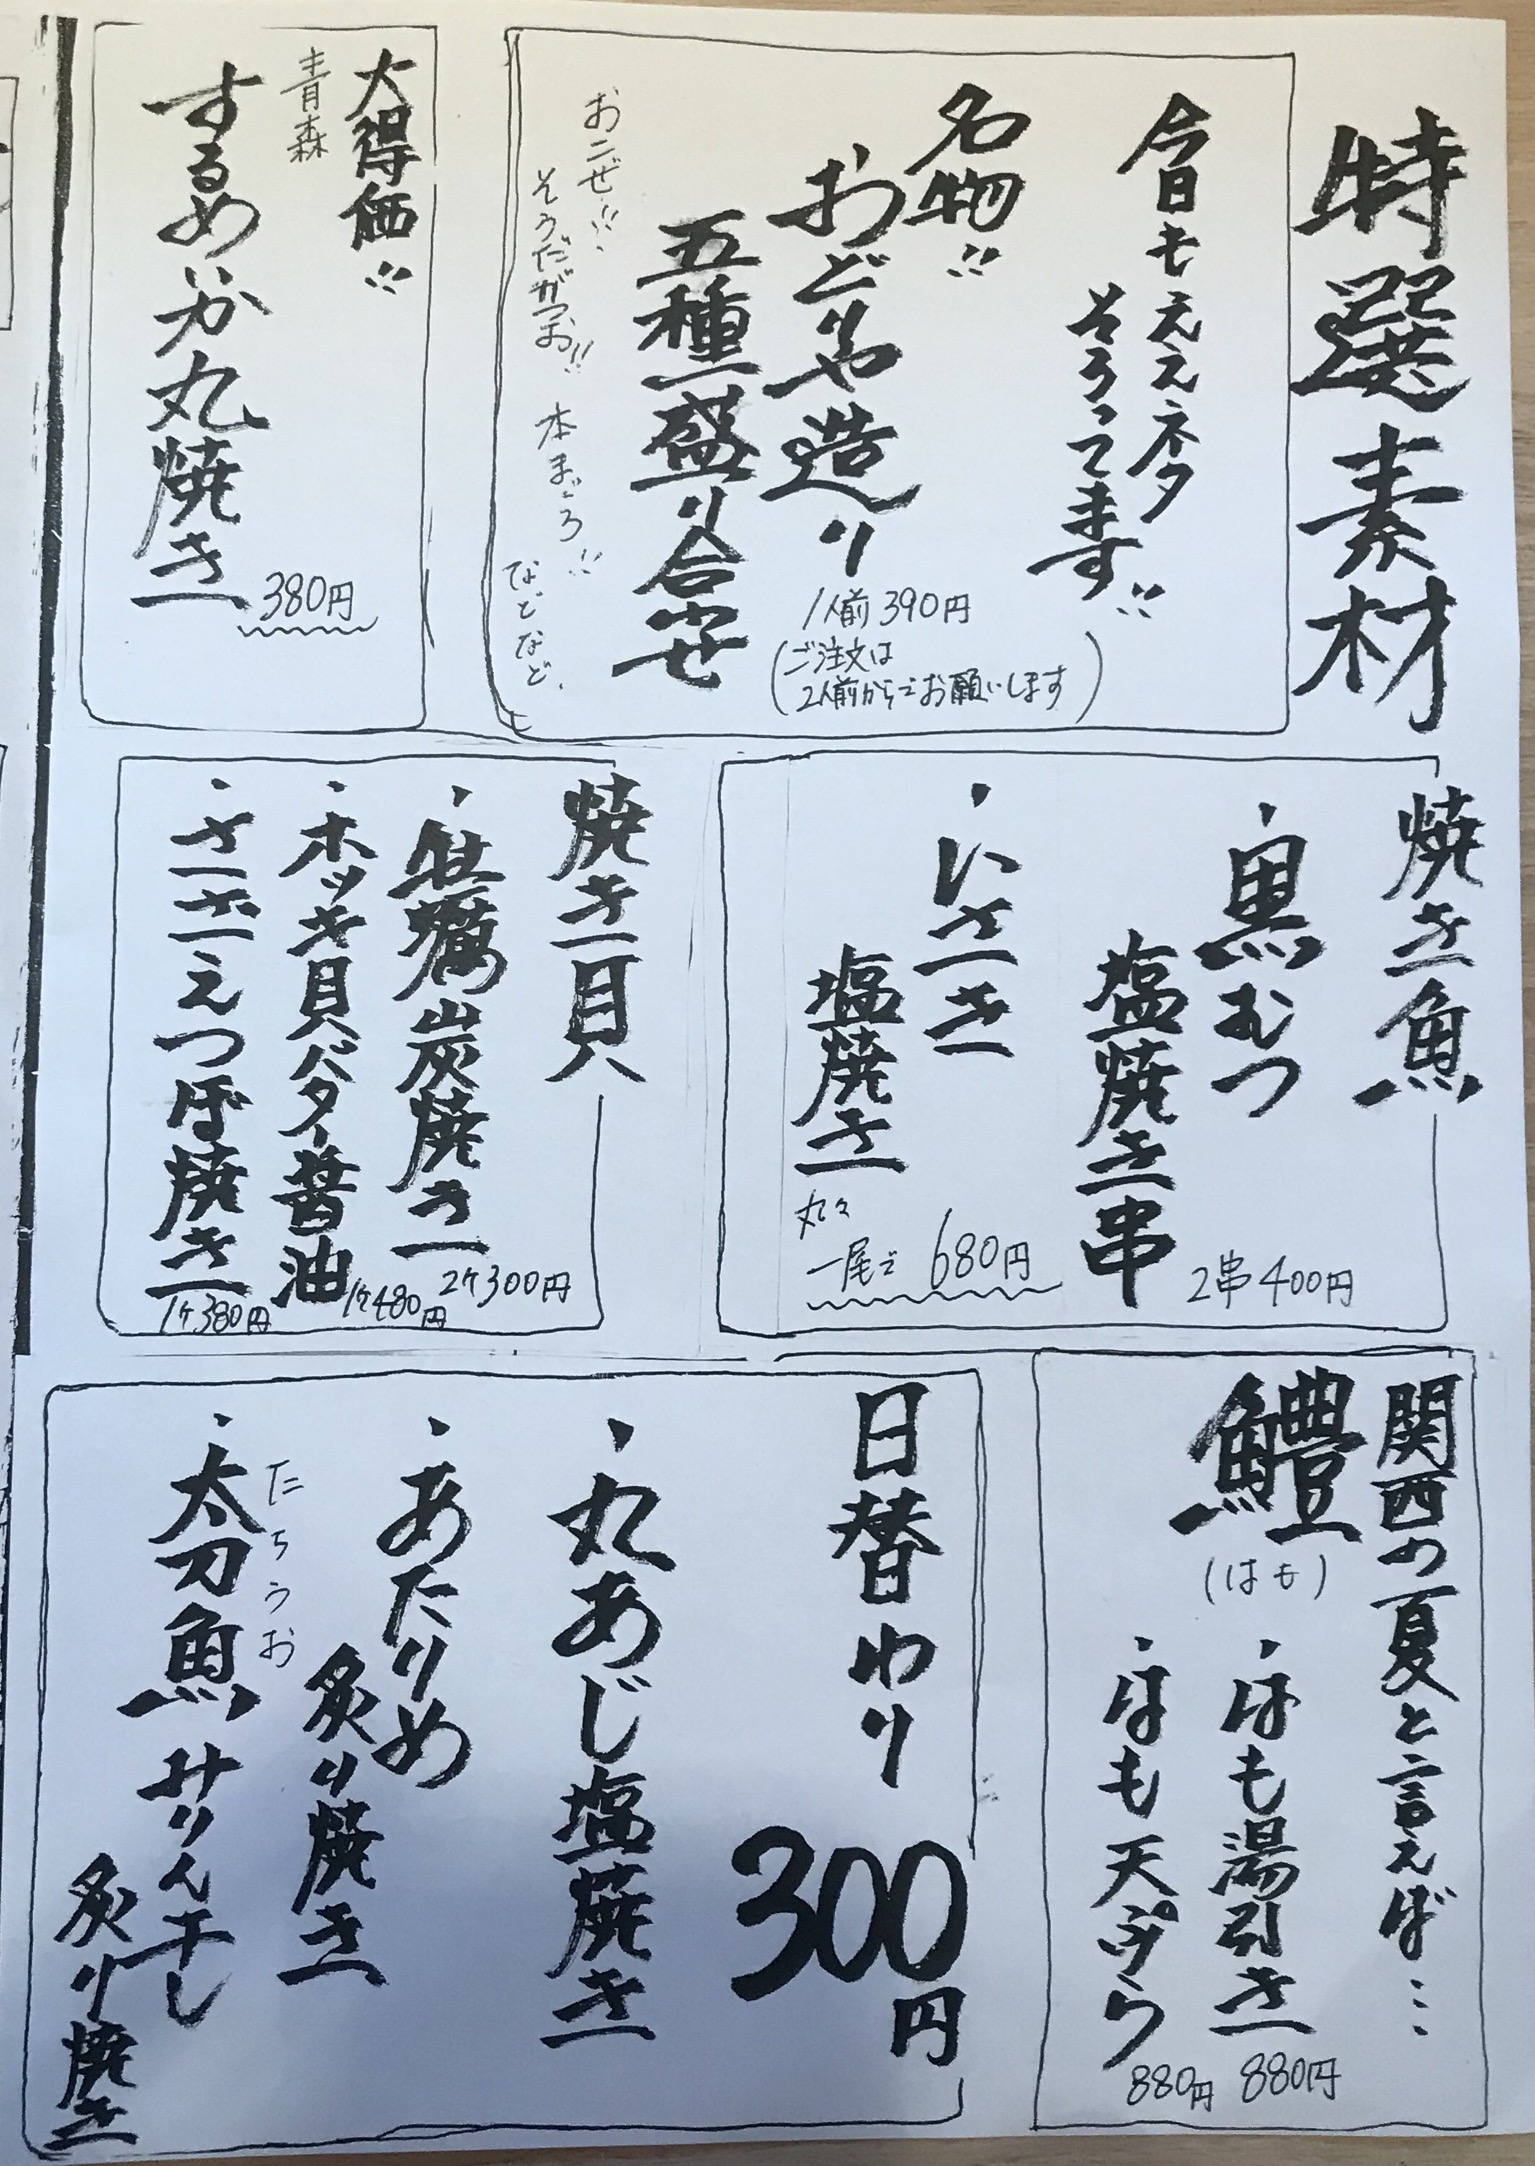 特選素材
今日もええネタ
そろってます!!
名物!!
おどりや造り
五種盛り合せ
1人前390円
(ご注文は
2人前からでお願いします)
おこぜ!!
そうだがつお!!
本まぐろ!!
などなど、
大得価!!
青森
するめいか丸焼き
380円
焼き魚
・黒むつ
塩焼き串
2串400円
・いさき
塩焼き
丸々
一尾で680円
焼き貝
・牡蠣炭焼き
2ケ300円
・ホッキ貝バター醤油
1ケ480円
・さざえつぼ焼き
1ケ380円
関西の夏と言えば…
鱧
(はも)
・はも湯引き
880円
・はも天ぷら
880円
日替わり
300円
・丸あじ塩焼き
・あたりめ
炙り焼き
たちうお
・太刀魚みりん干し
炙り焼き